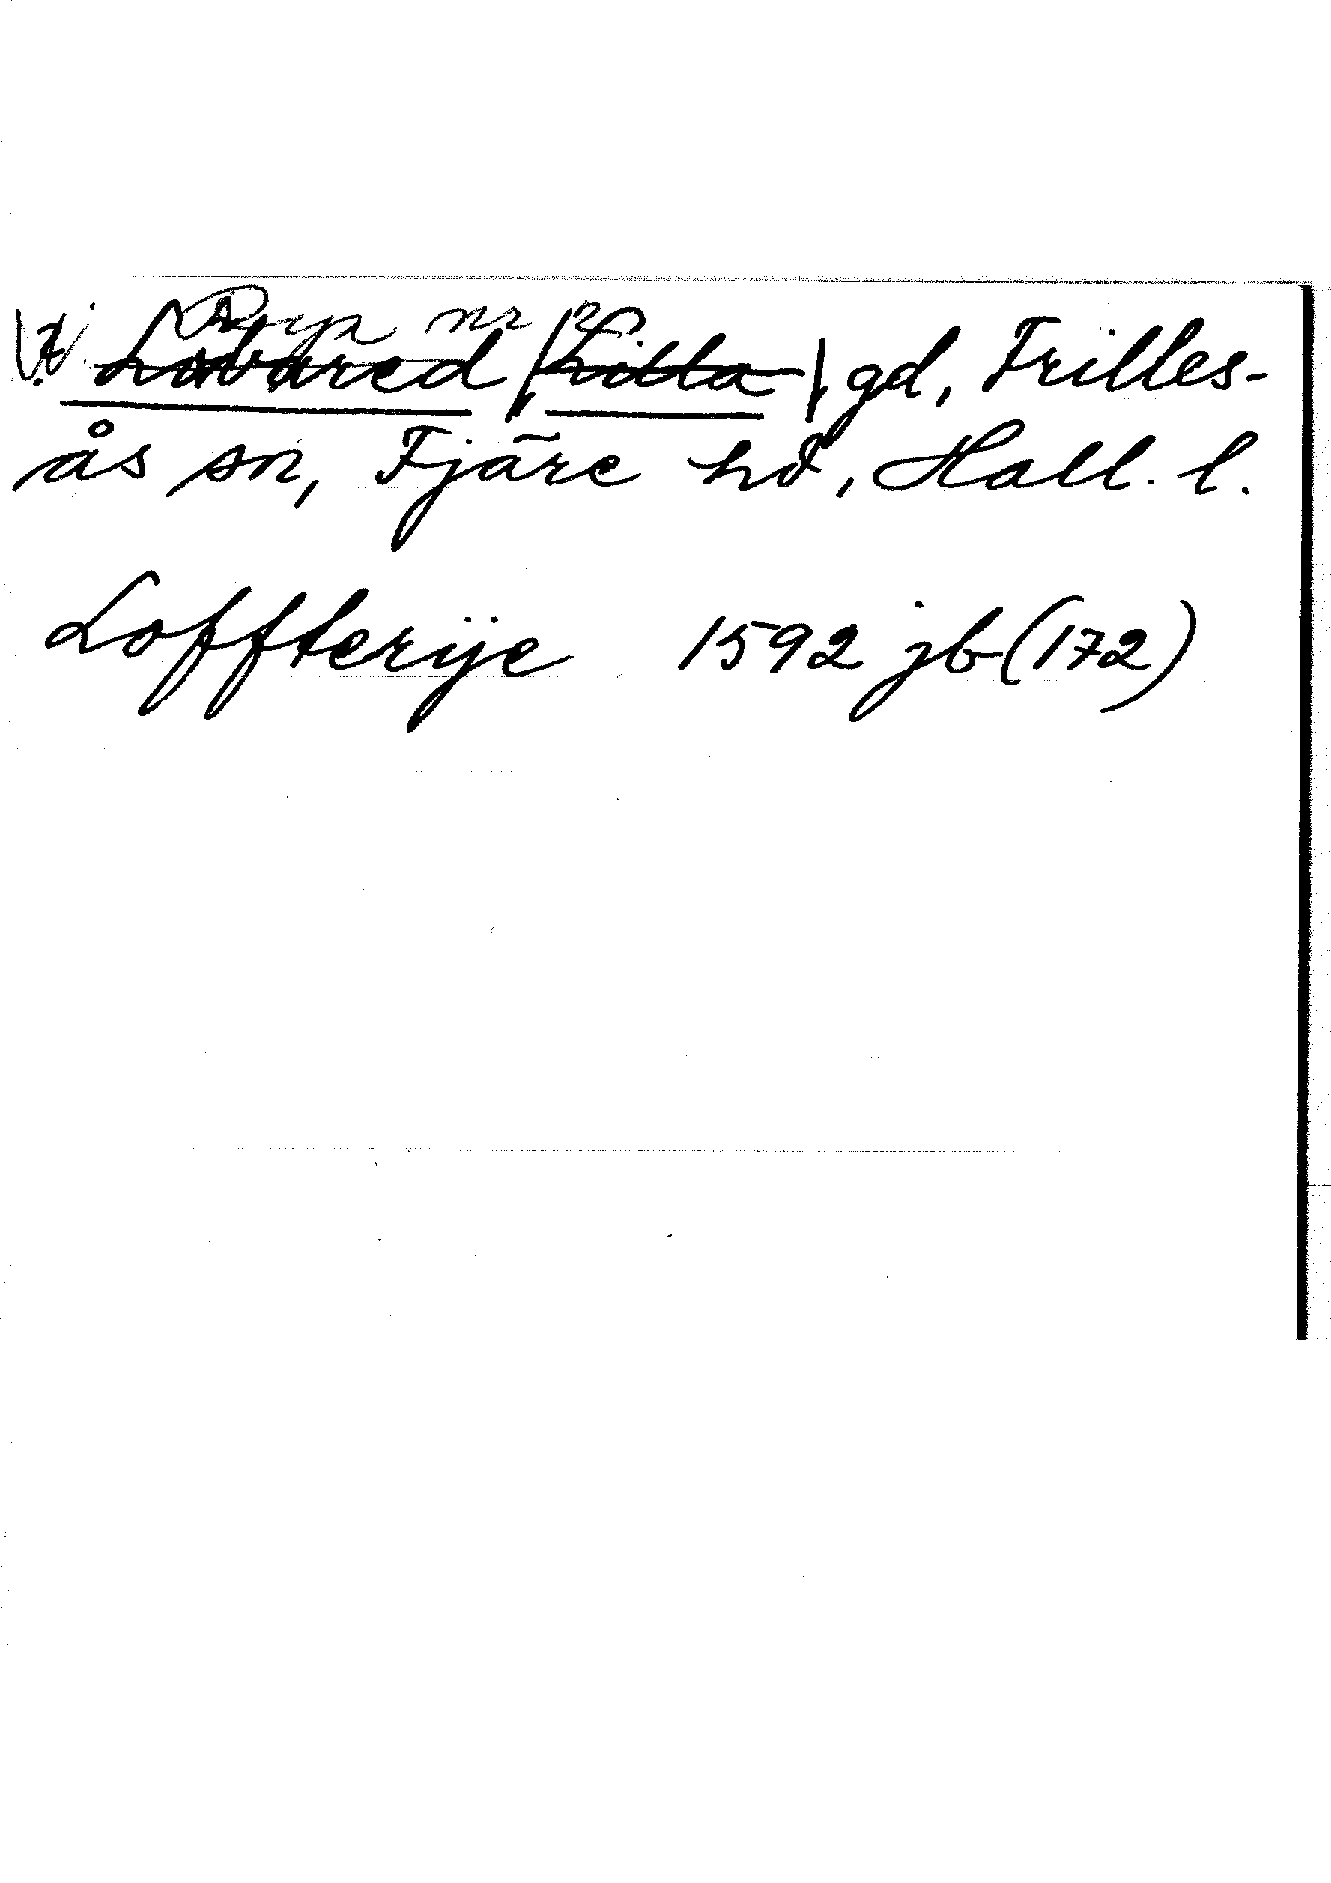 Rya nr 2
Lobared Lilla gd, Frilles-
ås sn, Fjäre hd, Hall. l.
Loffterÿe 1592 jb (172)